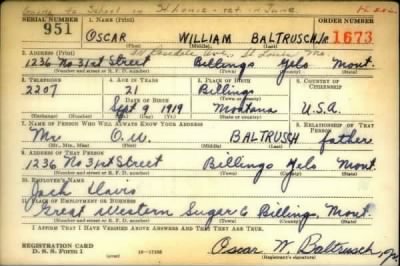 Going to School
SERIAL NUMBER 1. NAME (Print) ORDER NUMBER
951 OSCAR WILLIAM BALTRUSCH, Jr 1673
(First) (Middle) (Last)
St Louis Mo.
2. ADDRESS (Print)
1236 No 31st Street Billings Yels Mont.
(Number and street or R. F. D. number) (Town) (County) (State)
3. TELEPHONE 4. AGE IN YEARS 5. PLACE OF BIRTH 6. COUNTRY OF CITIZENSHIP
2207 21 Billings
DATE OF BIRTH (Town or county)
Sept 9 1919 Montana U.S.A.
(Exchange) (Number) (Mo.) (Day) (Yr.) (State or country)
7. NAME OF PERSON WHO WILL ALWAYS KNOW YOUR ADDRESS 8. RELATIONSHIP OF THAT PERSON
Mr O.W. BALTRUSCH father
(Mr., Mrs., Miss) (First) (Middle) (Last)
9. ADDRESS OF THAT PERSON
1236 No 31st Street Billings Yels Mont.
(Number and street or R. F. D. number) (Town) (County) (State)
10. EMPLOYER'S NAME
Jack
11. PLACE OF EMPLOYMENT OR BUSINESS
Great Western Sugar Co Billings, Mont.
(Number and street or R. F. D. number) (Town) (County) (State)
I AFFIRM THAT I HAVE VERIFIED ABOVE ANSWERS AND THAT THEY ARE TRUE.
REGISTRATION CARD
D. S. S. Form 1 16-17105 Oscar W. Baltrusch, Jr
(Registrant's signature)